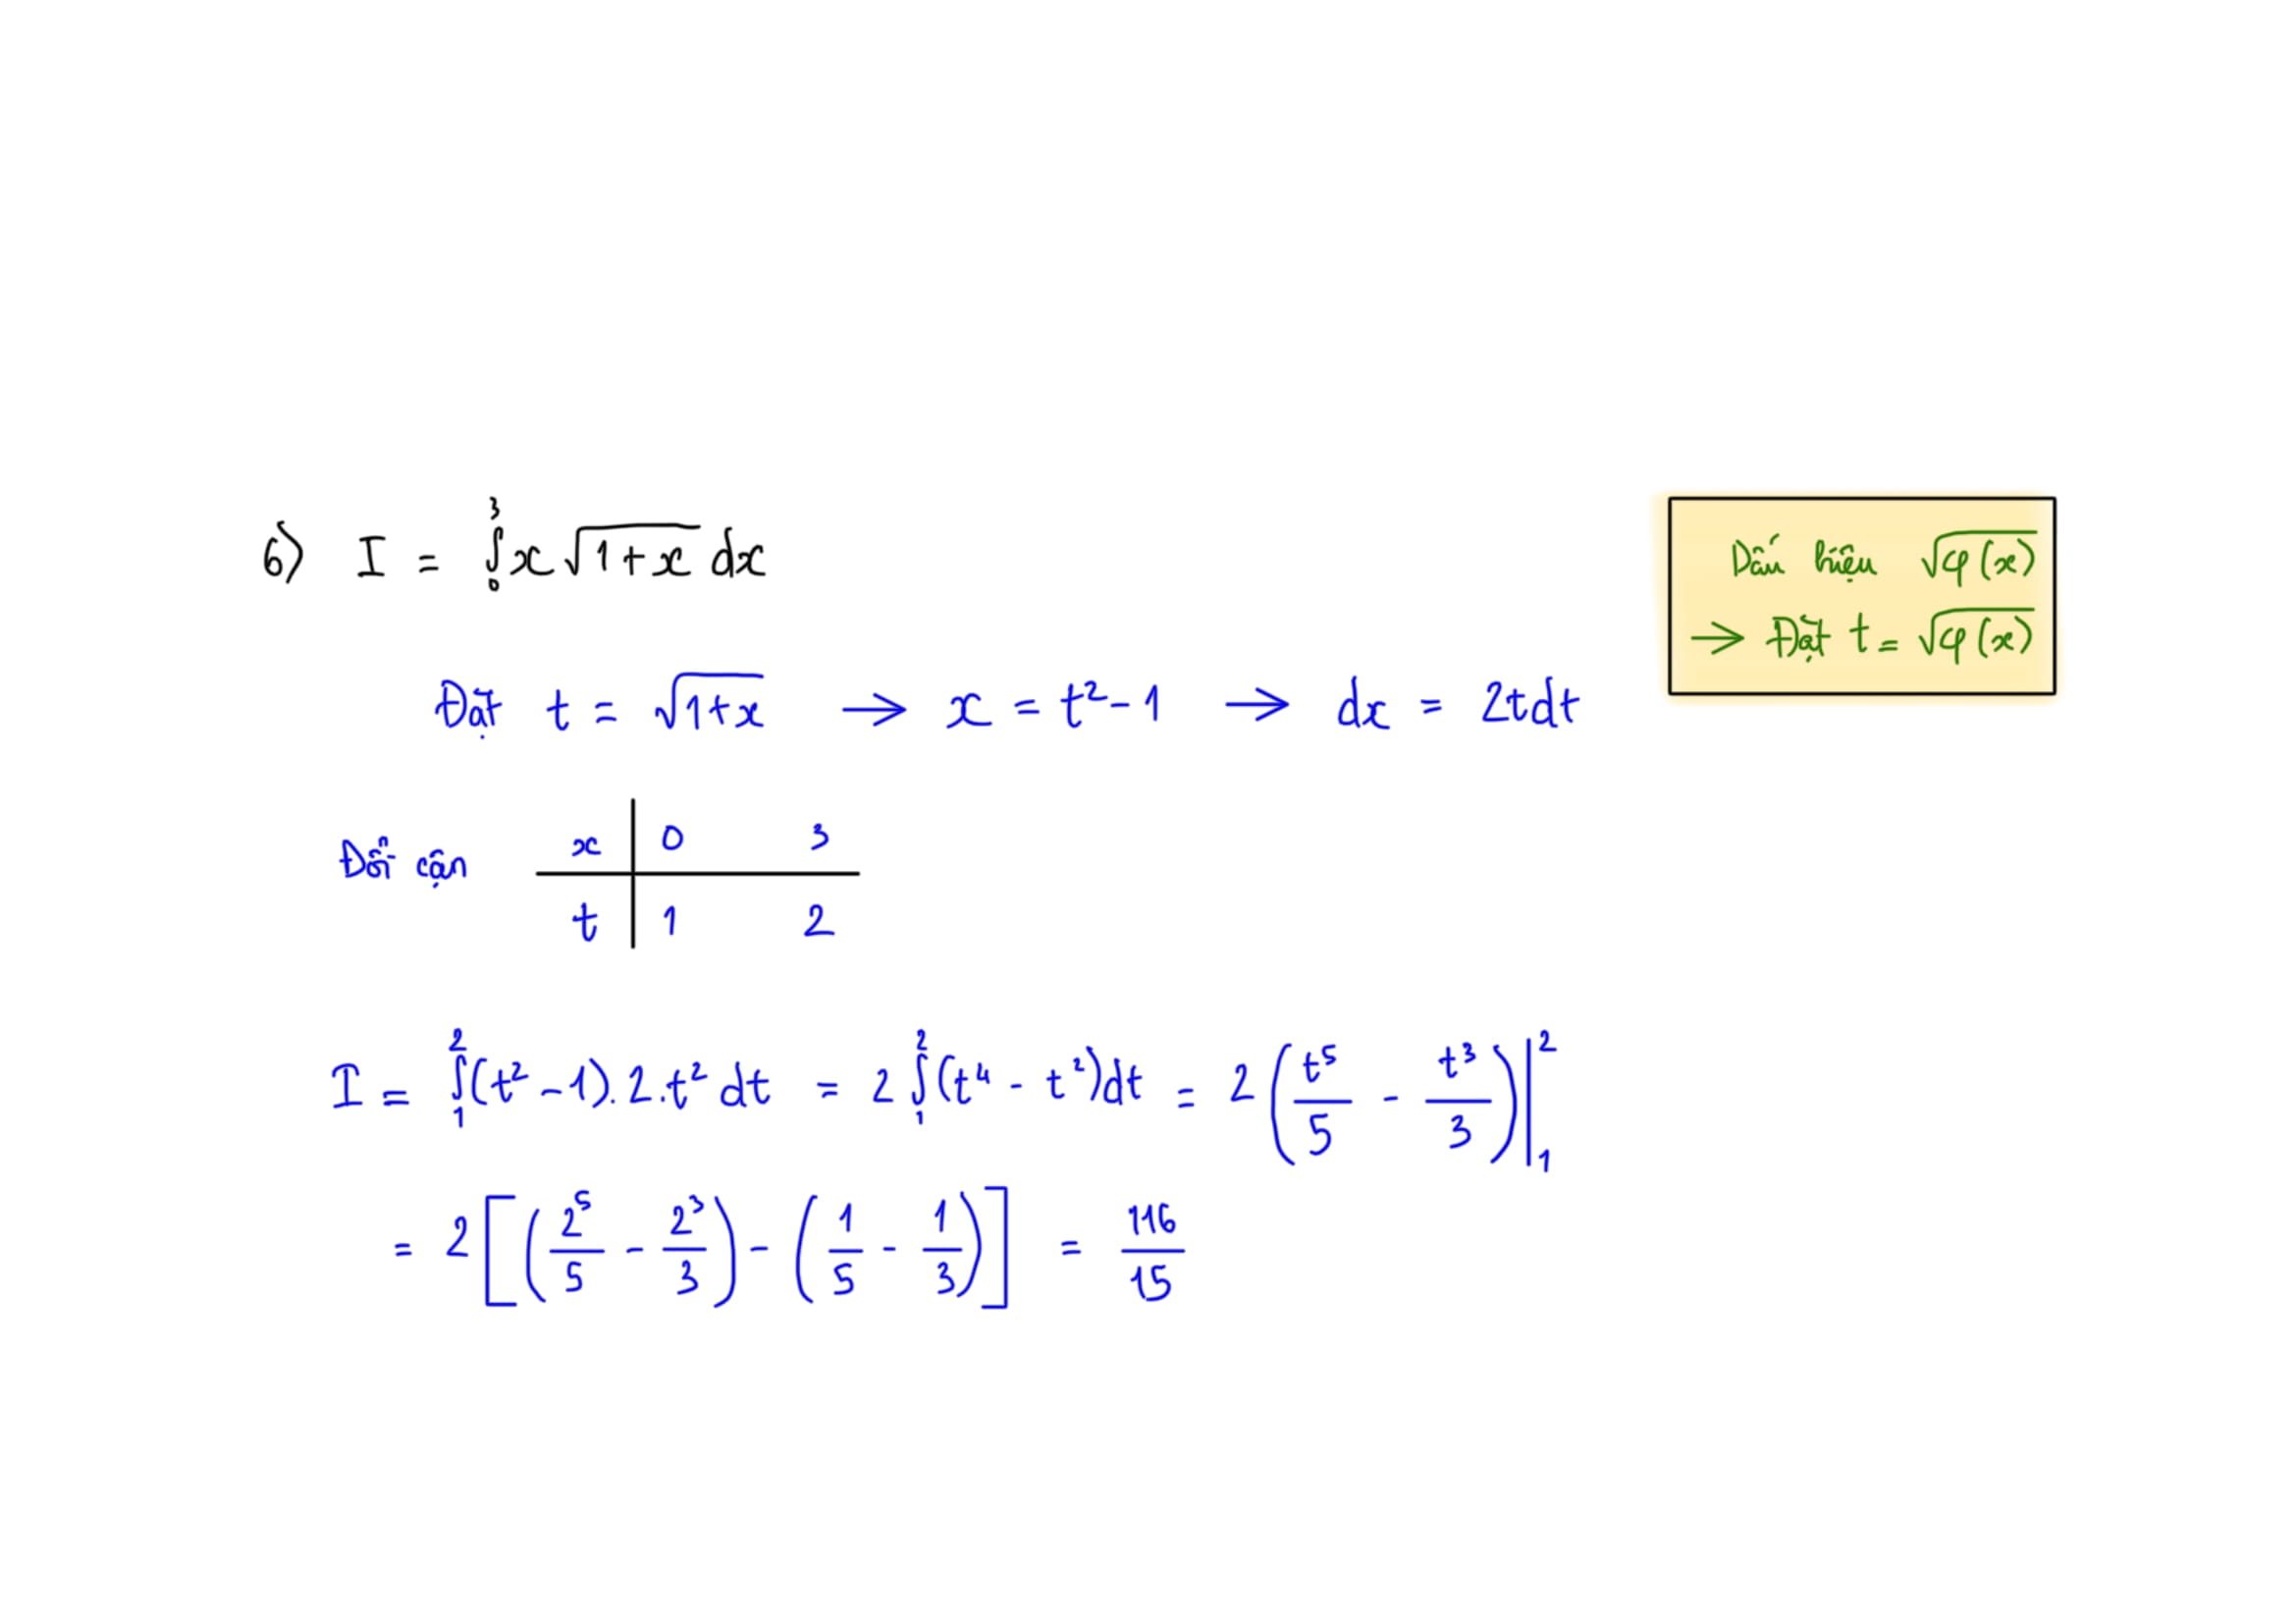 6) I = ∫₀³ x √(1+x) dx
Dấu hiệu √(φ(x))
→ Đặt t = √(φ(x))
Đặt t = √(1+x) → x = t² - 1 → dx = 2tdt
Đổi cận
x | 0 3
t | 1 2
I = ∫₁² (t² - 1).2.t² dt = 2 ∫₁² (t⁴ - t²)dt = 2 (t⁵/5 - t³/3) |₁²
= 2 [(2⁵/5 - 2³/3) - (1/5 - 1/3)] = 116/15